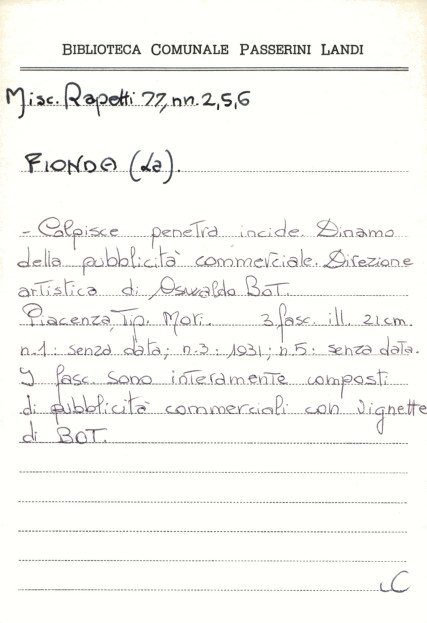 BIBLIOTECA COMUNALE PASSERINI LANDI
Misc. Rapetti 77, nn. 2,5,6
FIONDA (La).
- Colpisce penetra incide. Dinamo
della pubblicità commerciale. Direzione
artistica di Oswaldo BOT.
Piacenza, Tip. Mori. 3 fasc. ill. 21 cm.
n.1: senza data; n.3: 1931; n.5: senza data.
I fasc. sono interamente composti
di pubblicità commerciali con vignette
di BOT.